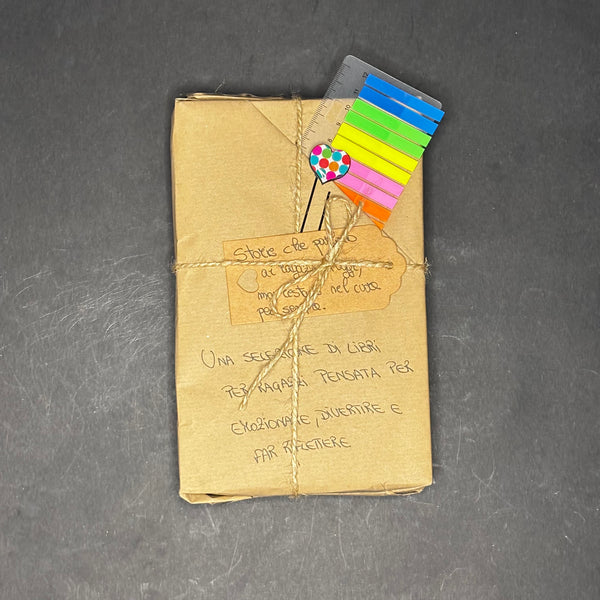 12
11
8
Storie che parlano
ai ragazzi
ma restano nel cuore
per sempre.
UNA SELEZIONE DI LIBRI
PER RAGAZZI PENSATA PER
EMOZIONARE, DIVERTIRE E
FAR RIFLETTERE